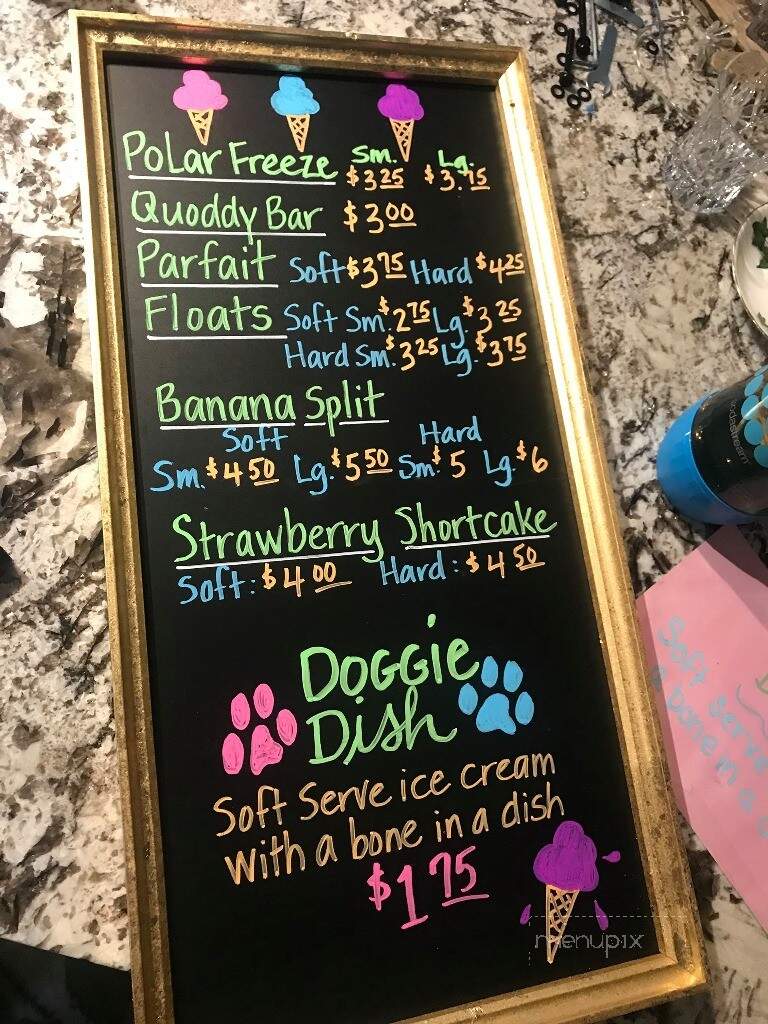 Polar Freeze Sm. $3.25 Lg. $3.75
Quoddy Bar $3.00
Parfait Soft $3.75 Hard $4.25
Floats Soft Sm. $2.75 Lg. $3.25
Hard Sm. $3.25 Lg. $3.75
Banana Split
Soft Hard
Sm. $4.50 Lg. $5.50 Sm. $5 Lg. $6
Strawberry Shortcake
Soft: $4.00 Hard: $4.50
Doggie
Dish
Soft Serve ice cream
with a bone in a dish
$1.75
menupix
sodastream
Soft serve
a bone in a